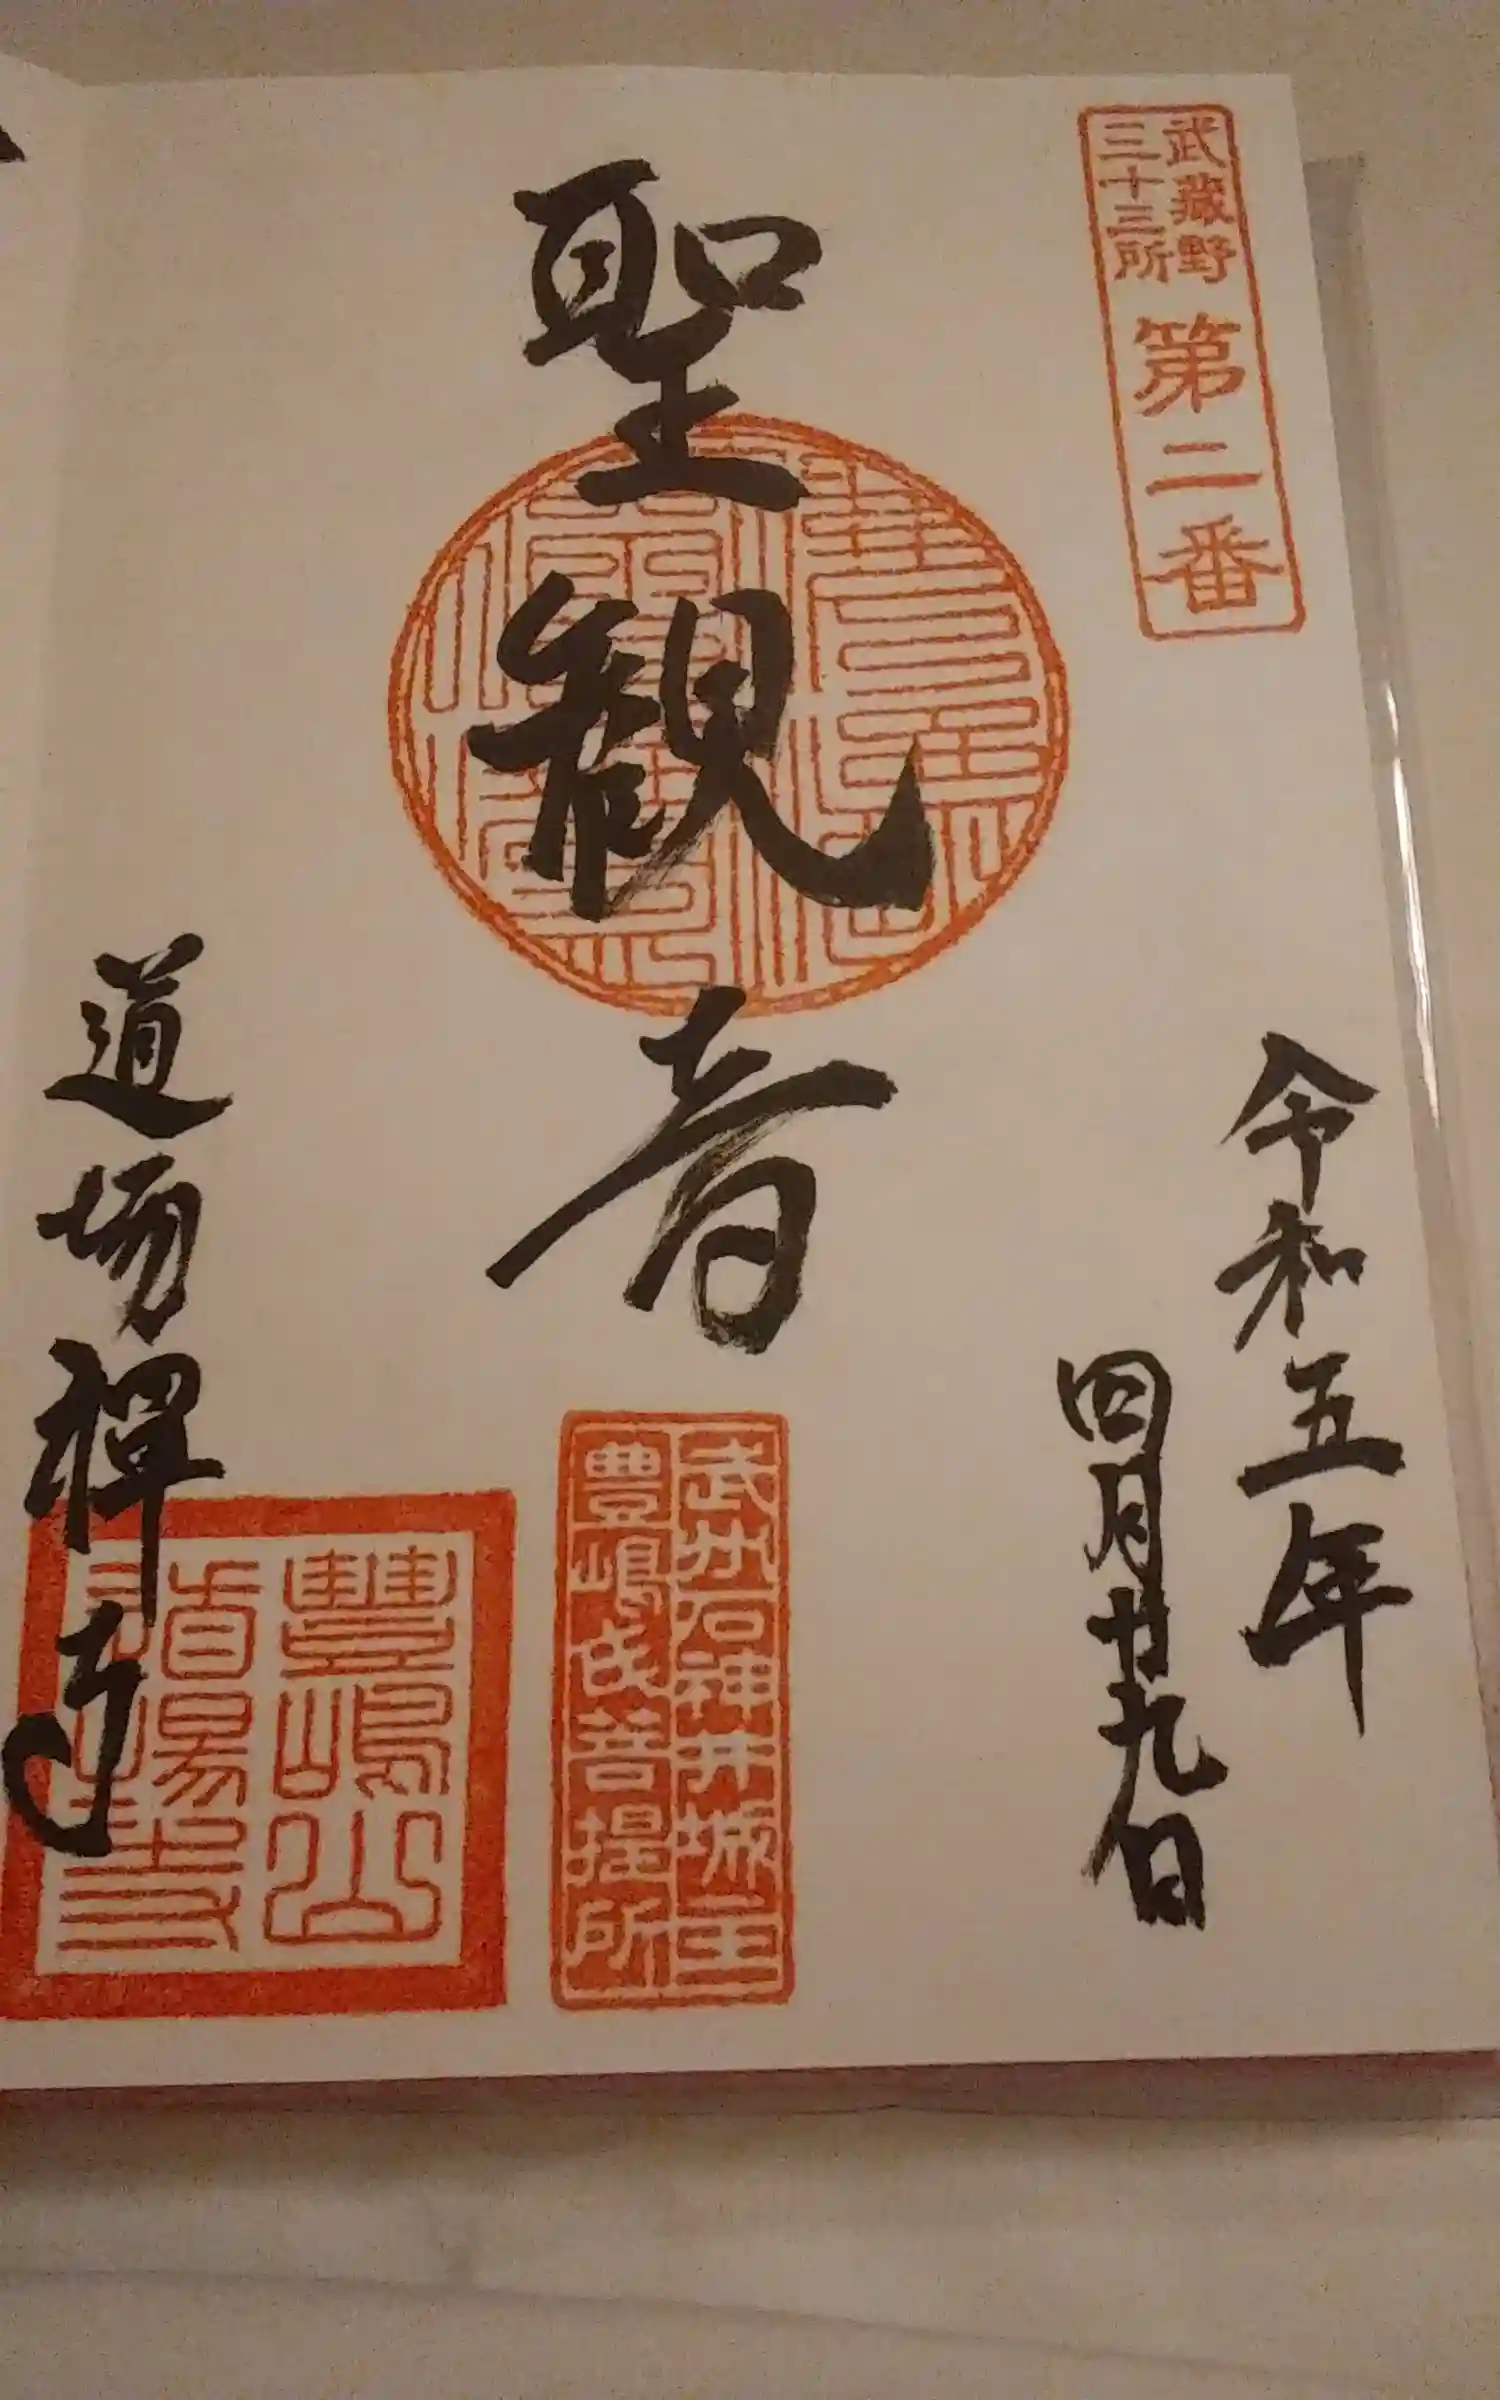 武蔵野
三十三所
第二番
令和五年
四月廿九日
聖観音
武州石神井城主
豊嶋氏菩提所
道場禅寺
豊嶋山
道場寺